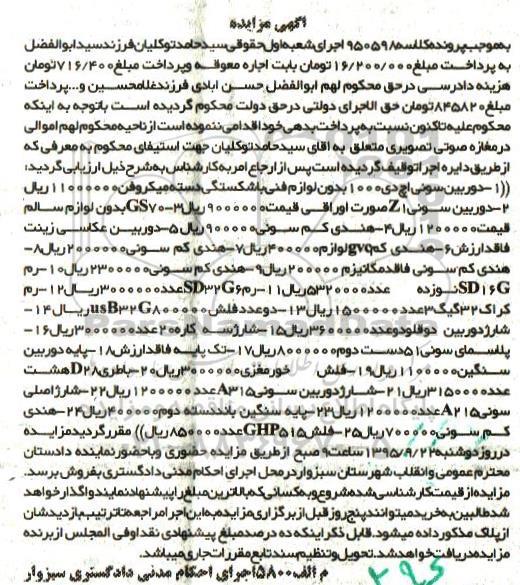 آگهی مزایده
به موجب پرونده کلاسه ۹۵۰۵۹۸ اجرای شعبه اول حقوقی سیدحامد توکلیان فرزند سیدابوالفضل
به پرداخت مبلغ ۱۶/۲۰۰/۰۰۰ تومان بابت اجاره معوقه و پرداخت مبلغ ۷۱۶/۴۰۰ تومان
هزینه دادرسی در حق محکوم لهم ابوالفضل حسن ابادی فرزند غلامحسین و... پرداخت
مبلغ ۸۴۵۸۲۰ تومان حق الاجرای دولتی در حق دولت محکوم گردیده است باتوجه به اینکه
محکوم علیه تاکنون نسبت به پرداخت بدهی خود اقدامی ننموده است از ناحیه محکوم لهم اموالی
در مغازه صوتی تصویری متعلق به اقای سیدحامد توکلیان جهت استیفای محکوم به معرفی که
از طریق دایره اجرا توقیف گردیده است پس از ارجاع امر به کارشناس به شرح ذیل ارزیابی گردید:
((۱-دوربین سونی اچ دی ۱۰۰۰ بدون لوازم فنی با شکستگی دسته میکروفن ۱۱۰۰۰۰۰۰ ریال
۲-دوربین سونی Z1 صورت اوراقی قیمت ۹۰۰۰۰۰۰ ریال ۳-GS۷۰ بدون لوازم سالم
قیمت ۱۲۰۰۰۰۰ ریال ۴-هندی کم سونی ۹۰۰۰۰۰ ریال ۵-دوربین عکاسی زینت
فاقد ارزش ۶-هندی کم gvc لوازم ۴۰۰۰۰۰ ریال ۷-هندی کم سونی ۲۰۰۰۰۰۰ ریال ۸-
هندی کم سونی فاقد مکانیزم ۲۰۰۰۰۰ ریال ۹-هندی کم سونی ۲۳۰۰۰۰۰ ریال ۱۰-رم
SD۱۶G نوزده عدد ۵۳۲۰۰۰۰ ریال ۱۱-رم SD۳۲G ۶ عدد ۳۰۰۰۰۰۰ ریال ۱۲-رم
کراک ۳۲ گیگ ۳ عدد ۱۵۰۰۰۰۰ ریال ۱۳-دو عدد فلش usB۳۲G ۸۰۰۰۰۰ ریال ۱۴-
شارژ دوربین دوقلو دو عدد ۳۶۰۰۰۰ ریال ۱۵-شارژ ست کاره ۲۰ عدد ۳۰۰۰۰۰۰ ریال ۱۶-
پلاسمای سونی ۵۱ دست دوم ۸۰۰۰۰۰۰ ریال ۱۷-تک پایه فاقد ارزش ۱۸-پایه دوربین
سنگین ۱۱۰۰۰۰۰ ریال ۱۹-فلش خور مغزی ۳۰۰۰۰۰۰ ریال ۲۰-باطری D۲۸ هشت
عدد ۳۱۵۰۰۰۰ ریال ۲۱-شارژ دوربین سونی A۳۱۵ عدد ۱۲۰۰۰۰۰ ریال ۲۲-شارژ اصلی
سونی A۲۱۵ عدد ۱۲۰۰۰۰۰ ریال ۲۳-پایه سنگین باند دسته دوم ۴۰۰۰۰۰ ریال ۲۴-هندی
کم سونی ۷۰۰۰۰۰ ریال ۲۵-فلش GHP۵۱۵ عدد ۸۵۰۰۰۰ ریال)) مقرر گردید مزایده
در روز دوشنبه ۱۳۹۵/۹/۲۲ ساعت ۹ صبح از طریق مزایده حضوری و با حضور نماینده دادستان
محترم عمومی و انقلاب شهرستان سبزوار در محل اجرای احکام مدنی دادگستری بفروش برسد.
مزایده از قیمت کارشناسی شده شروع و به کسانی که بالاترین مبلغ را پیشنهاد نمایند واگذار خواهد
شد طالبین به خرید میتوانند پنج روز قبل از برگزاری مزایده به این اجرا مراجعه تا ترتیب بازدیدشان
از پلاک مذکور داده میشود. قابل ذکر اینکه ده درصد مبلغ پیشنهادی نقدا و فی المجلس از برنده
مزایده دریافت خواهد شد. تحویل و تنظیم سند تابع مقررات جاری میباشد.
م الف ۵۸۰۰ اجرای احکام مدنی دادگستری سبزوار